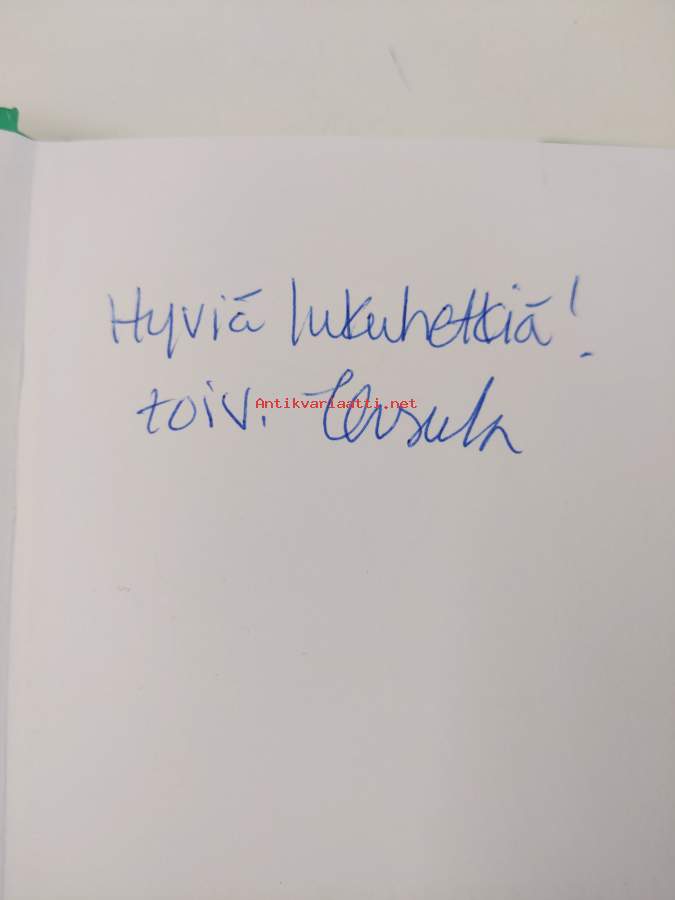 Hyviä lukuhetkiä!
toiv.
Antikvariaatti.net